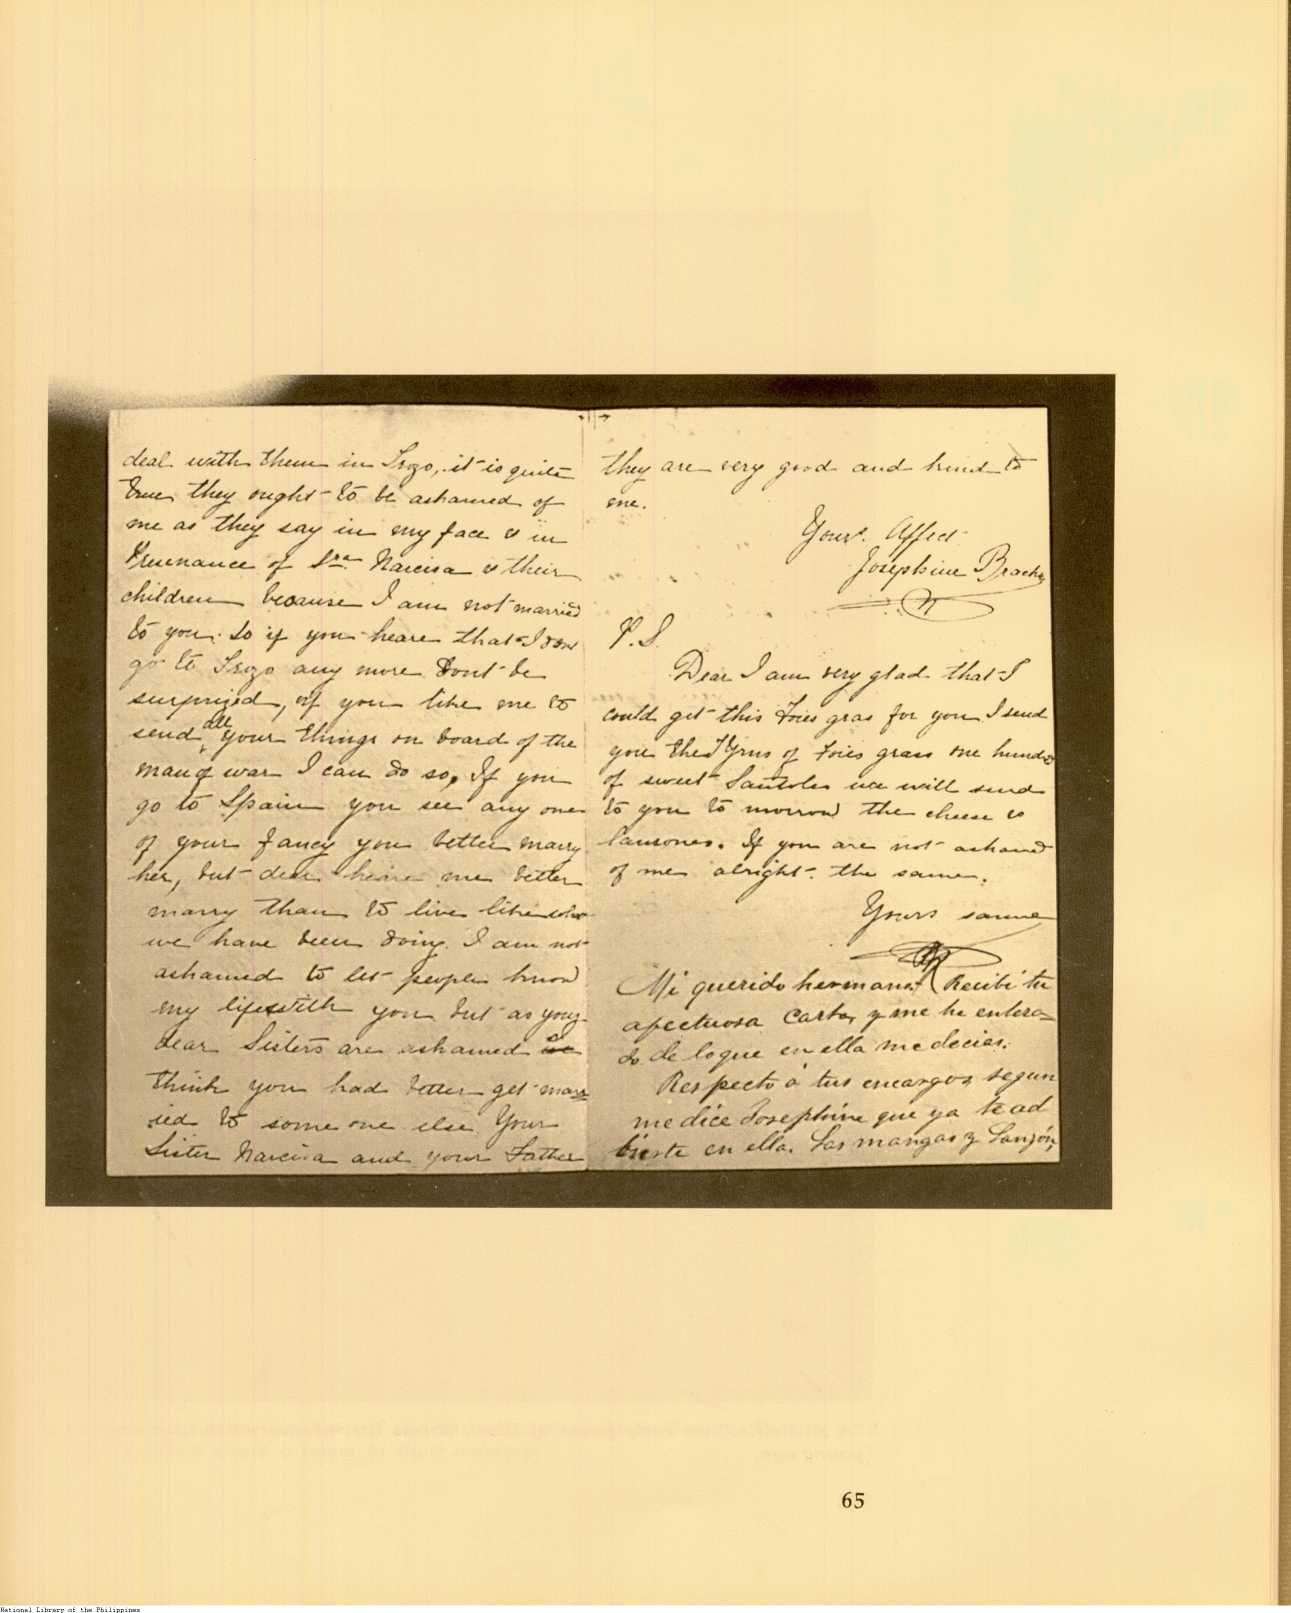 deal with them in Trozo, it is quite
true they ought to be ashamed of
me as they say in my face & in
Presenance of Sra. Narcisa & their
children because I am not married
to you. So if you heare that I dont
go to Trozo any more dont be
surprized, if you like me to
send all your things on board of the
man of war I can do so, If you
go to Spain you see any one
of your fancy you better marry
her, but dear heare me better
marry than to live like
we have been doing. I am not
ashamed to let people know
my life with you but as your
dear Sisters are ashamed I
think you had better get mar=
ried to some one else Your
Sister Narcisa and your Father
they are very good and kind to
me.
Yours. Affect
Josephine Bracken
P. S.
Dear I am very glad that I
could get this Foies gras for you I send
you the of Foies grass one hundred
of sweet Santoles we will send
to you to morrow the cheese &
lansones. If you are not ashamed
of me alright. the same.
Yours same
Mi querido hermano: Recibí tu
afectuosa carta, y me he entera=
do de lo que en ella me decias.
Respecto á tus encargos, segun
me dice Josephine que ya te ad
en ella. Las mangas y Lanzón,
65
National Library of the Philippines